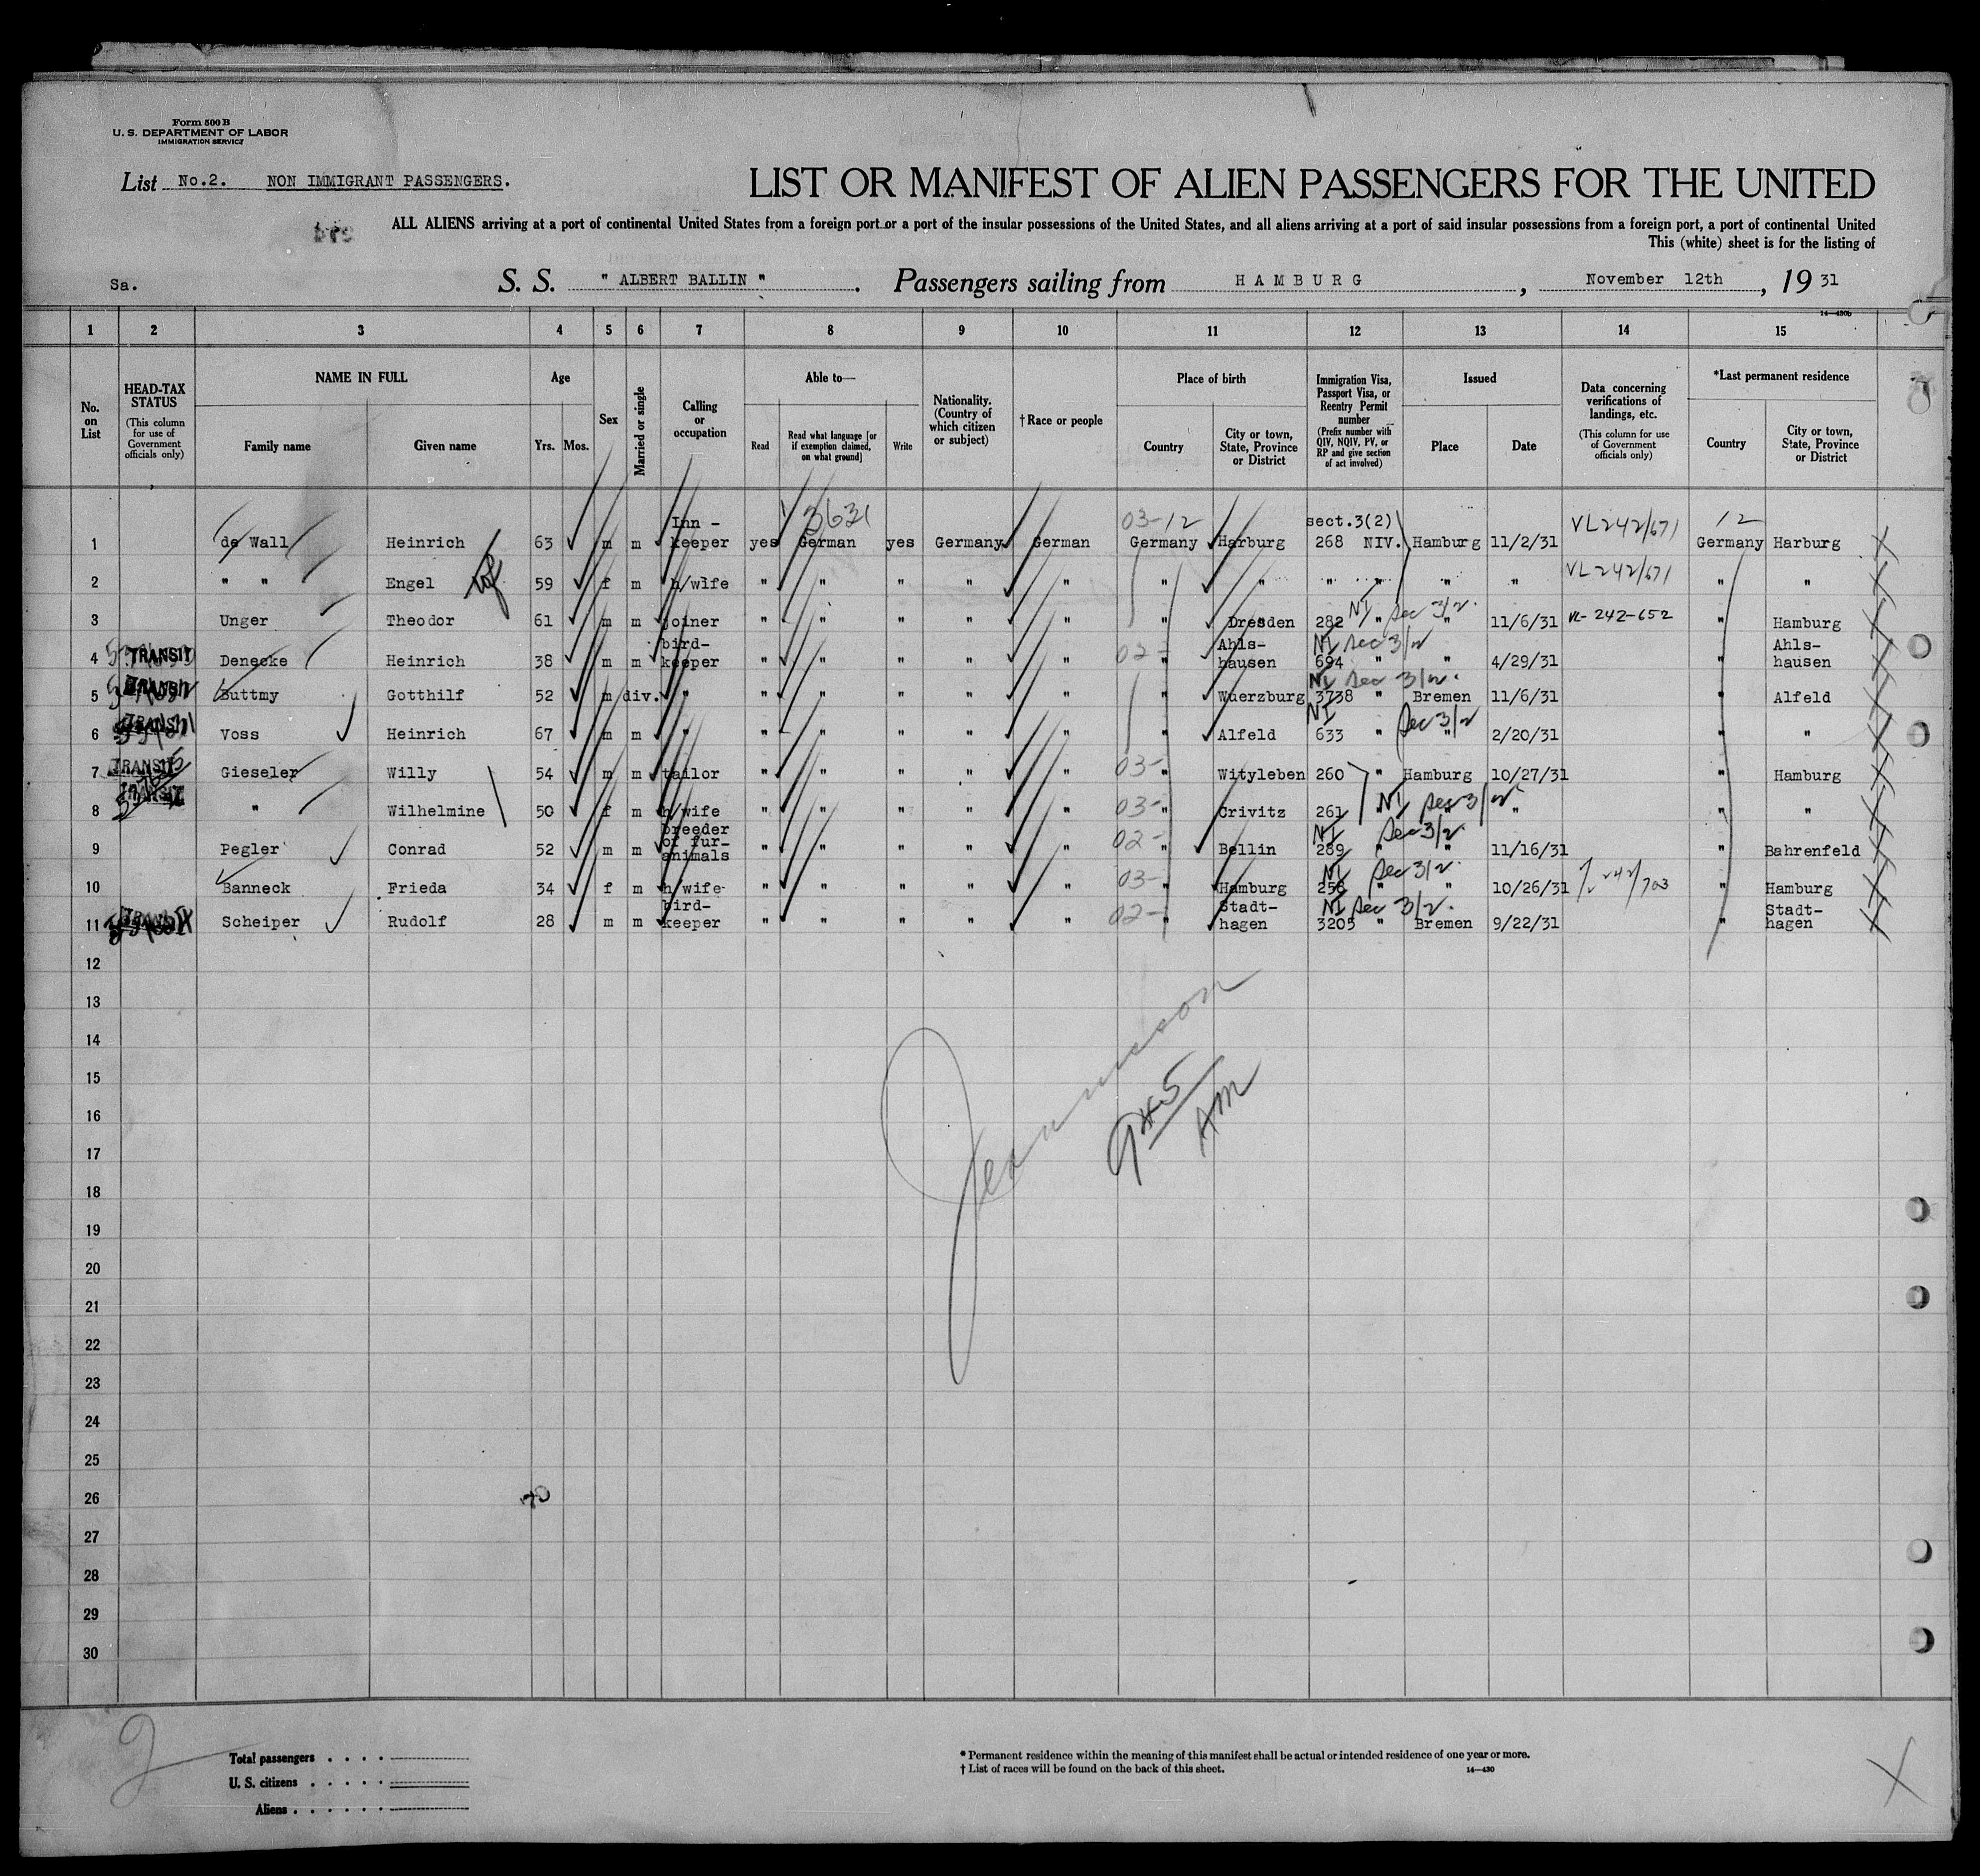 Form 500 B
U. S. DEPARTMENT OF LABOR
IMMIGRATION SERVICE
List No.2. NON IMMIGRANT PASSENGERS.
LIST OR MANIFEST OF ALIEN PASSENGERS FOR THE UNITED
ALL ALIENS arriving at a port of continental United States from a foreign port or a port of the insular possessions of the United States, and all aliens arriving at a port of said insular possessions from a foreign port, a port of continental United
This (white) sheet is for the listing of
Sa. S. S. " ALBERT BALLIN " . Passengers sailing from HAMBURG , November 12th , 19 31
14—430b
1 2 3 4 5 6 7 8 9 10 11 12 13 14 15
No. on List
HEAD-TAX STATUS (This column for use of Government officials only)
NAME IN FULL Family name Given name
Age Yrs. Mos.
Sex
Married or single
Calling or occupation
Able to— Read Read what language [or if exemption claimed, on what ground] Write
Nationality. (Country of which citizen or subject)
† Race or people
Place of birth Country City or town, State, Province or District
Immigration Visa, Passport Visa, or Reentry Permit number (Prefix number with QIV, NQIV, PV, or RP and give section of act involved)
Issued Place Date
Data concerning verifications of landings, etc. (This column for use of Government officials only)
*Last permanent residence Country City or town, State, Province or District
3621 03-12 12
1 de Wall Heinrich 63 m m Inn-keeper yes German yes Germany German Germany Harburg sect.3(2) 268 NIV. Hamburg 11/2/31 VL242/671 Germany Harburg
2 " " Engel 59 f m h/wife " " " " " " " " " " " VL242/671 " "
3 Unger Theodor 61 m m joiner " " " " " " Dresden 282 " NI Sec 3/2. " 11/6/31 VL-242-652 " Hamburg
4 TRANSIT Denecke Heinrich 38 m m bird-keeper " " " " " 02- " Ahls-hausen NI Sec 3/2 694 " " 4/29/31 " Ahls-hausen
5 TRANSIT Buttmy Gotthilf 52 m div. " " " " " " " Wuerzburg NI Sec 3/2. 3738 " Bremen 11/6/31 " Alfeld
6 TRANSIT Voss Heinrich 67 m m " " " " " " " Alfeld NI Sec 3/2 633 " " 2/20/31 " "
7 TRANSIT Gieseler Willy 54 m m tailor " " " " " 03- " Wityleben 260 " Hamburg 10/27/31 " Hamburg
8 TRANSIT " Wilhelmine 50 f m h/wife " " " " " 03- " Crivitz 261 NI Sec 3/2 " " " "
9 Pegler Conrad 52 m m breeder of fur-animals " " " " " 02- " Bellin NI Sec 3/2. 289 " " 11/16/31 " Bahrenfeld
10 Banneck Frieda 34 f m h/wife " " " " " 03- " Hamburg NI Sec 3/2. 258 " " 10/26/31 " Hamburg
11 TRANSIT Scheiper Rudolf 28 m m bird-keeper " " " " " 02- " Stadt-hagen NI Sec 3/2. 3205 " Bremen 9/22/31 " Stadt-hagen
12
13
14
15
945
AM
16
17
18
19
20
21
22
23
24
25
26
27
28
29
30
2
Total passengers . . . .
U. S. citizens . . . . .
Aliens . . . . . .
* Permanent residence within the meaning of this manifest shall be actual or intended residence of one year or more.
† List of races will be found on the back of this sheet.
14—430
X